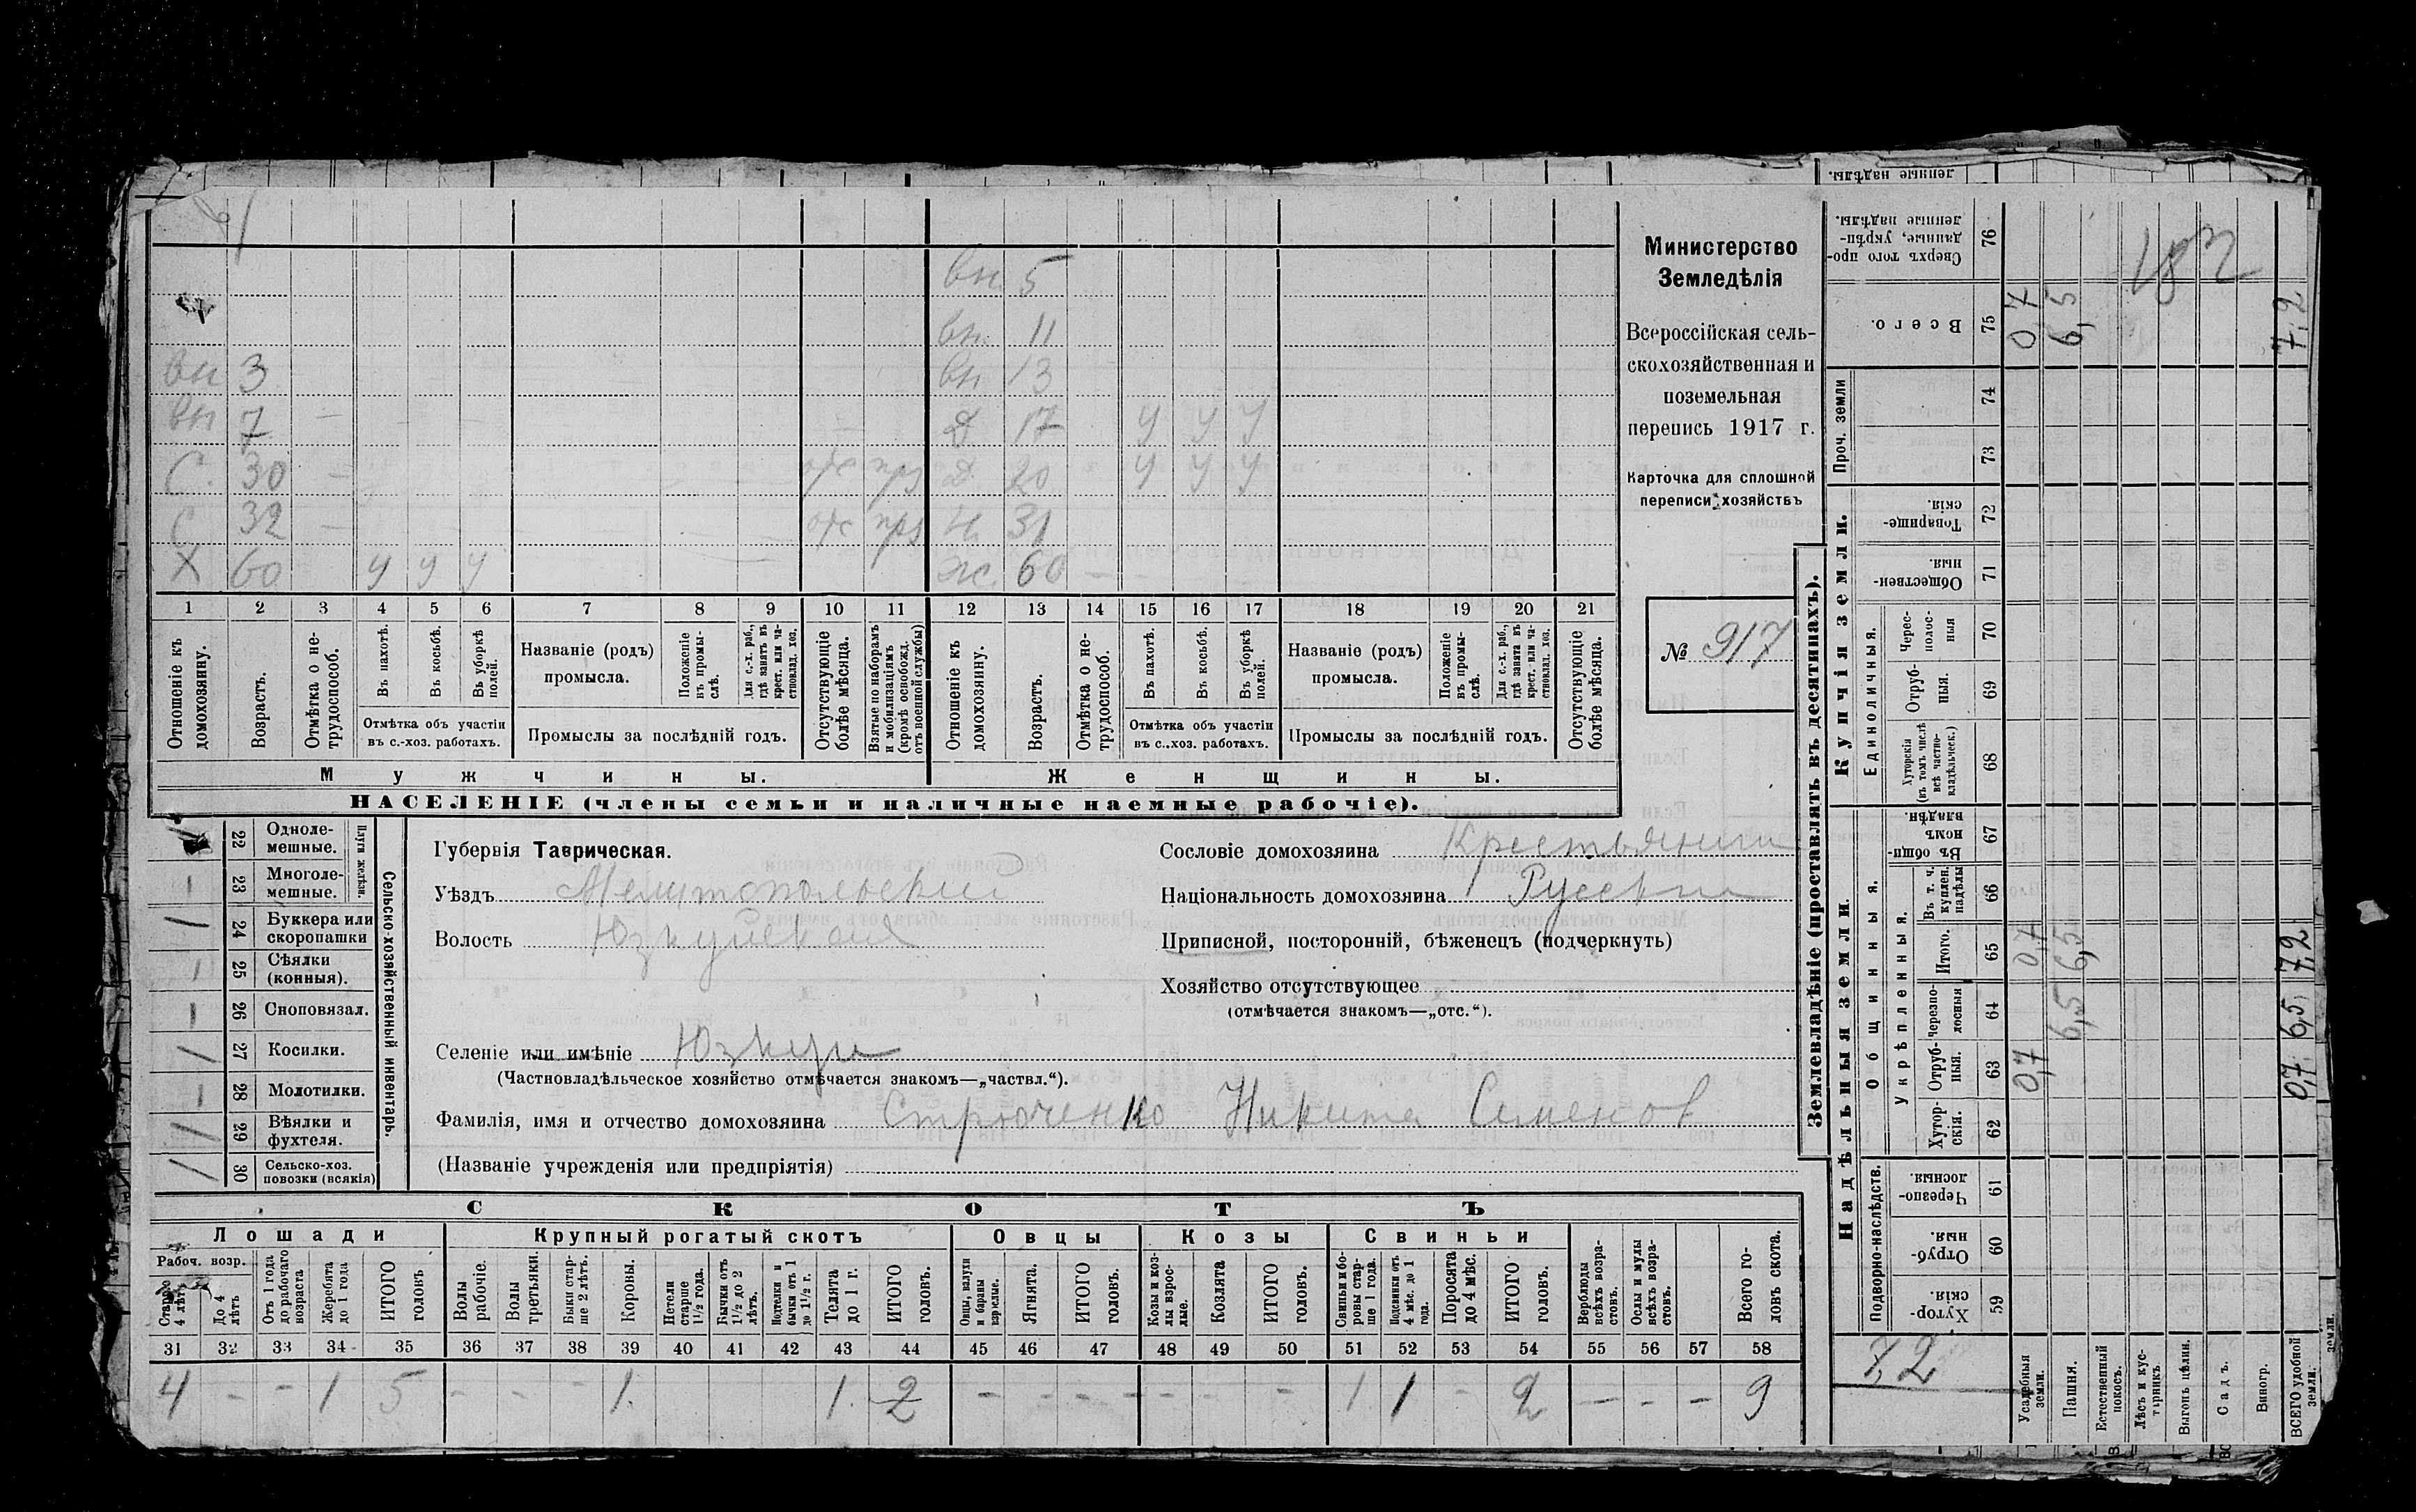 вн. 5
вн. 11
вн 3 вн 13
вн 7 Д 17 у у у
С. 30 отс Д. 20 у у у
С 32 отс Н. 31
Х 60 у у у Ж. 60
1 2 3 4 5 6 7 8 9 10 11 12 13 14 15 16 17 18 19 20 21
Отношеніе къ домохозяину.
Возрастъ.
Отмѣтка о не-трудоспособ.
Въ пахотѣ.
Въ косьбѣ.
Въ уборкѣ полей.
Отмѣтка объ участіи
въ с.-хоз. работахъ.
Названіе (родъ)
промысла.
Положеніе въ промы-слѣ.
Для с.-х. раб., гдѣ занятъ въ крест. или ча-стновлад. хоз.
Промыслы за послѣдній годъ.
Отсутствующіе болѣе мѣсяца.
Взятые по наборамъ и мобилизаціямъ (кромѣ освобожд. отъ военной службы)
Отношеніе къ домохозяину.
Возрастъ.
Отмѣтка о не-трудоспособ.
Въ пахотѣ.
Въ косьбѣ.
Въ уборкѣ полей.
Отмѣтка объ участіи
въ с..хоз. работахъ.
Названіе (родъ)
промысла.
Положеніе въ промы-слѣ.
Для с.-х. раб., гдѣ занята въ крест. или ча-стновлад. хоз.
Промыслы за послѣдній годъ.
Отсутствующіе болѣе мѣсяца.
Мужчины. Женщины.
НАСЕЛЕНІЕ (члены семьи и наличные наемные рабочіе).
Министерство
Земледѣлія
Всероссійская сель-
скохозяйственная и
поземельная
перепись 1917 г.
Карточка для сплошной
переписи хозяйствъ
№ 917
22 Одноле-мешные.
Плуги желѣзн.
1 23 Многоле-мешные.
1 24 Буккера или скоропашки
1 25 Сѣялки (конныя).
1 26 Сноповязал.
1 27 Косилки.
1 28 Молотилки.
1 29 Вѣялки и фухтеля.
1 30 Сельско-хоз. повозки (всякія)
Сельско-хозяйственный инвентарь.
Губернія Таврическая.
Уѣздъ Мелитопольский
Волость Юзкуйская
Селеніе или имѣніе Юзкуи
(Частновладѣльческое хозяйство отмѣчается знакомъ—„частвл.“).
Фамилія, имя и отчество домохозяина Строченко Никита Семенов
(Названіе учрежденія или предпріятія)
Сословіе домохозяина Крестьянин
Національность домохозяина Русский
Приписной, посторонній, бѣженецъ (подчеркнуть)
Хозяйство отсутствующее
(отмѣчается знакомъ—„отс.“).
СКОТЪ
Лошади Крупный рогатый скотъ Овцы Козы Свиньи
Рабоч. возр.
Старше 4 лѣтъ
До 4 лѣтъ
Отъ 1 года до рабочаго возраста
Жеребята до 1 года
ИТОГО головъ
Волы рабочіе.
Волы третьяки.
Быки стар-ше 2 лѣтъ.
Коровы.
Нетели старше 1½ года.
Бычки отъ 1½ до 2 лѣтъ.
Подтелки и бычки отъ 1 до 1½ г.
Телята до 1 г.
ИТОГО головъ.
Овцы, валухи и бараны взрослые.
Ягнята.
ИТОГО головъ.
Козы и коз-лы взрос-лые.
Козлята
ИТОГО головъ.
Свиньи и бо-ровы стар-ше 1 года.
Подсвинки отъ 4 мѣс. до 1 года.
Поросята до 4 мѣс.
ИТОГО головъ.
Верблюды всѣхъ возра-стовъ.
Ослы и мулы всѣхъ возра-стовъ.
Всего го-ловъ скота.
31 32 33 34 35 36 37 38 39 40 41 42 43 44 45 46 47 48 49 50 51 52 53 54 55 56 57 58
4 - - 1 5 - - - 1. 1. 2 - - - - - - 1 1 - 2 - - - 9
Землевладѣніе (проставлять въ десятинахъ).
Надѣльныя земли. Купчія земли. Проч. земли
Подворно-наслѣдств. Общинныя. Укрѣпленныя. Единоличныя.
59 Хутор-скія.
60 Отруб-ныя.
61 Черезпо-лосныя.
62 Хутор-скія.
63 Отруб-ныя. 0,7
64 Черезпо-лосныя 6,5
65 Итого. 0,7 6,5
66 Въ т. ч. куплен. надѣлы
67 Въ общи-номъ владѣн.
68 Хуторскія (въ томъ числѣ всѣ частно-владѣльческ.)
69 Отруб-ныя.
70 Черес-полос-ныя
71 Обществен-ныя.
72 Товарище-скія.
73 74
75 Всего. 0 7 6,5 7,2
76 Сверхъ того про-данные, укрѣп-ленные надѣлы.
182
0,7 6,5 7,2
7,2
Усадебныя земли.
Пашня.
Естественный покосъ.
Лѣсъ и кус-тарникъ
Выгонъ цѣлин.
Садъ.
Виногр.
ВСЕГО удобной земли.
ленные надѣлы.
земли.